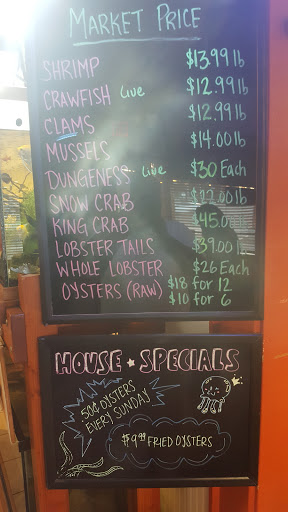 MARKET PRICE
SHRIMP $13.99 lb
CRAWFISH Live $12.99 lb
CLAMS $12.99 lb
MUSSELS $14.00 lb
DUNGENESS Live $30 Each
SNOW CRAB $22.00 lb
KING CRAB $45.0
LOBSTER TAILS $39.00 lb
WHOLE LOBSTER $26 Each
OYSTERS (RAW) $18 for 12
$10 for 6
HOUSE ★ SPECIALS
50¢ OYSTERS
EVERY SUNDAY
$9.99 FRIED OYSTERS